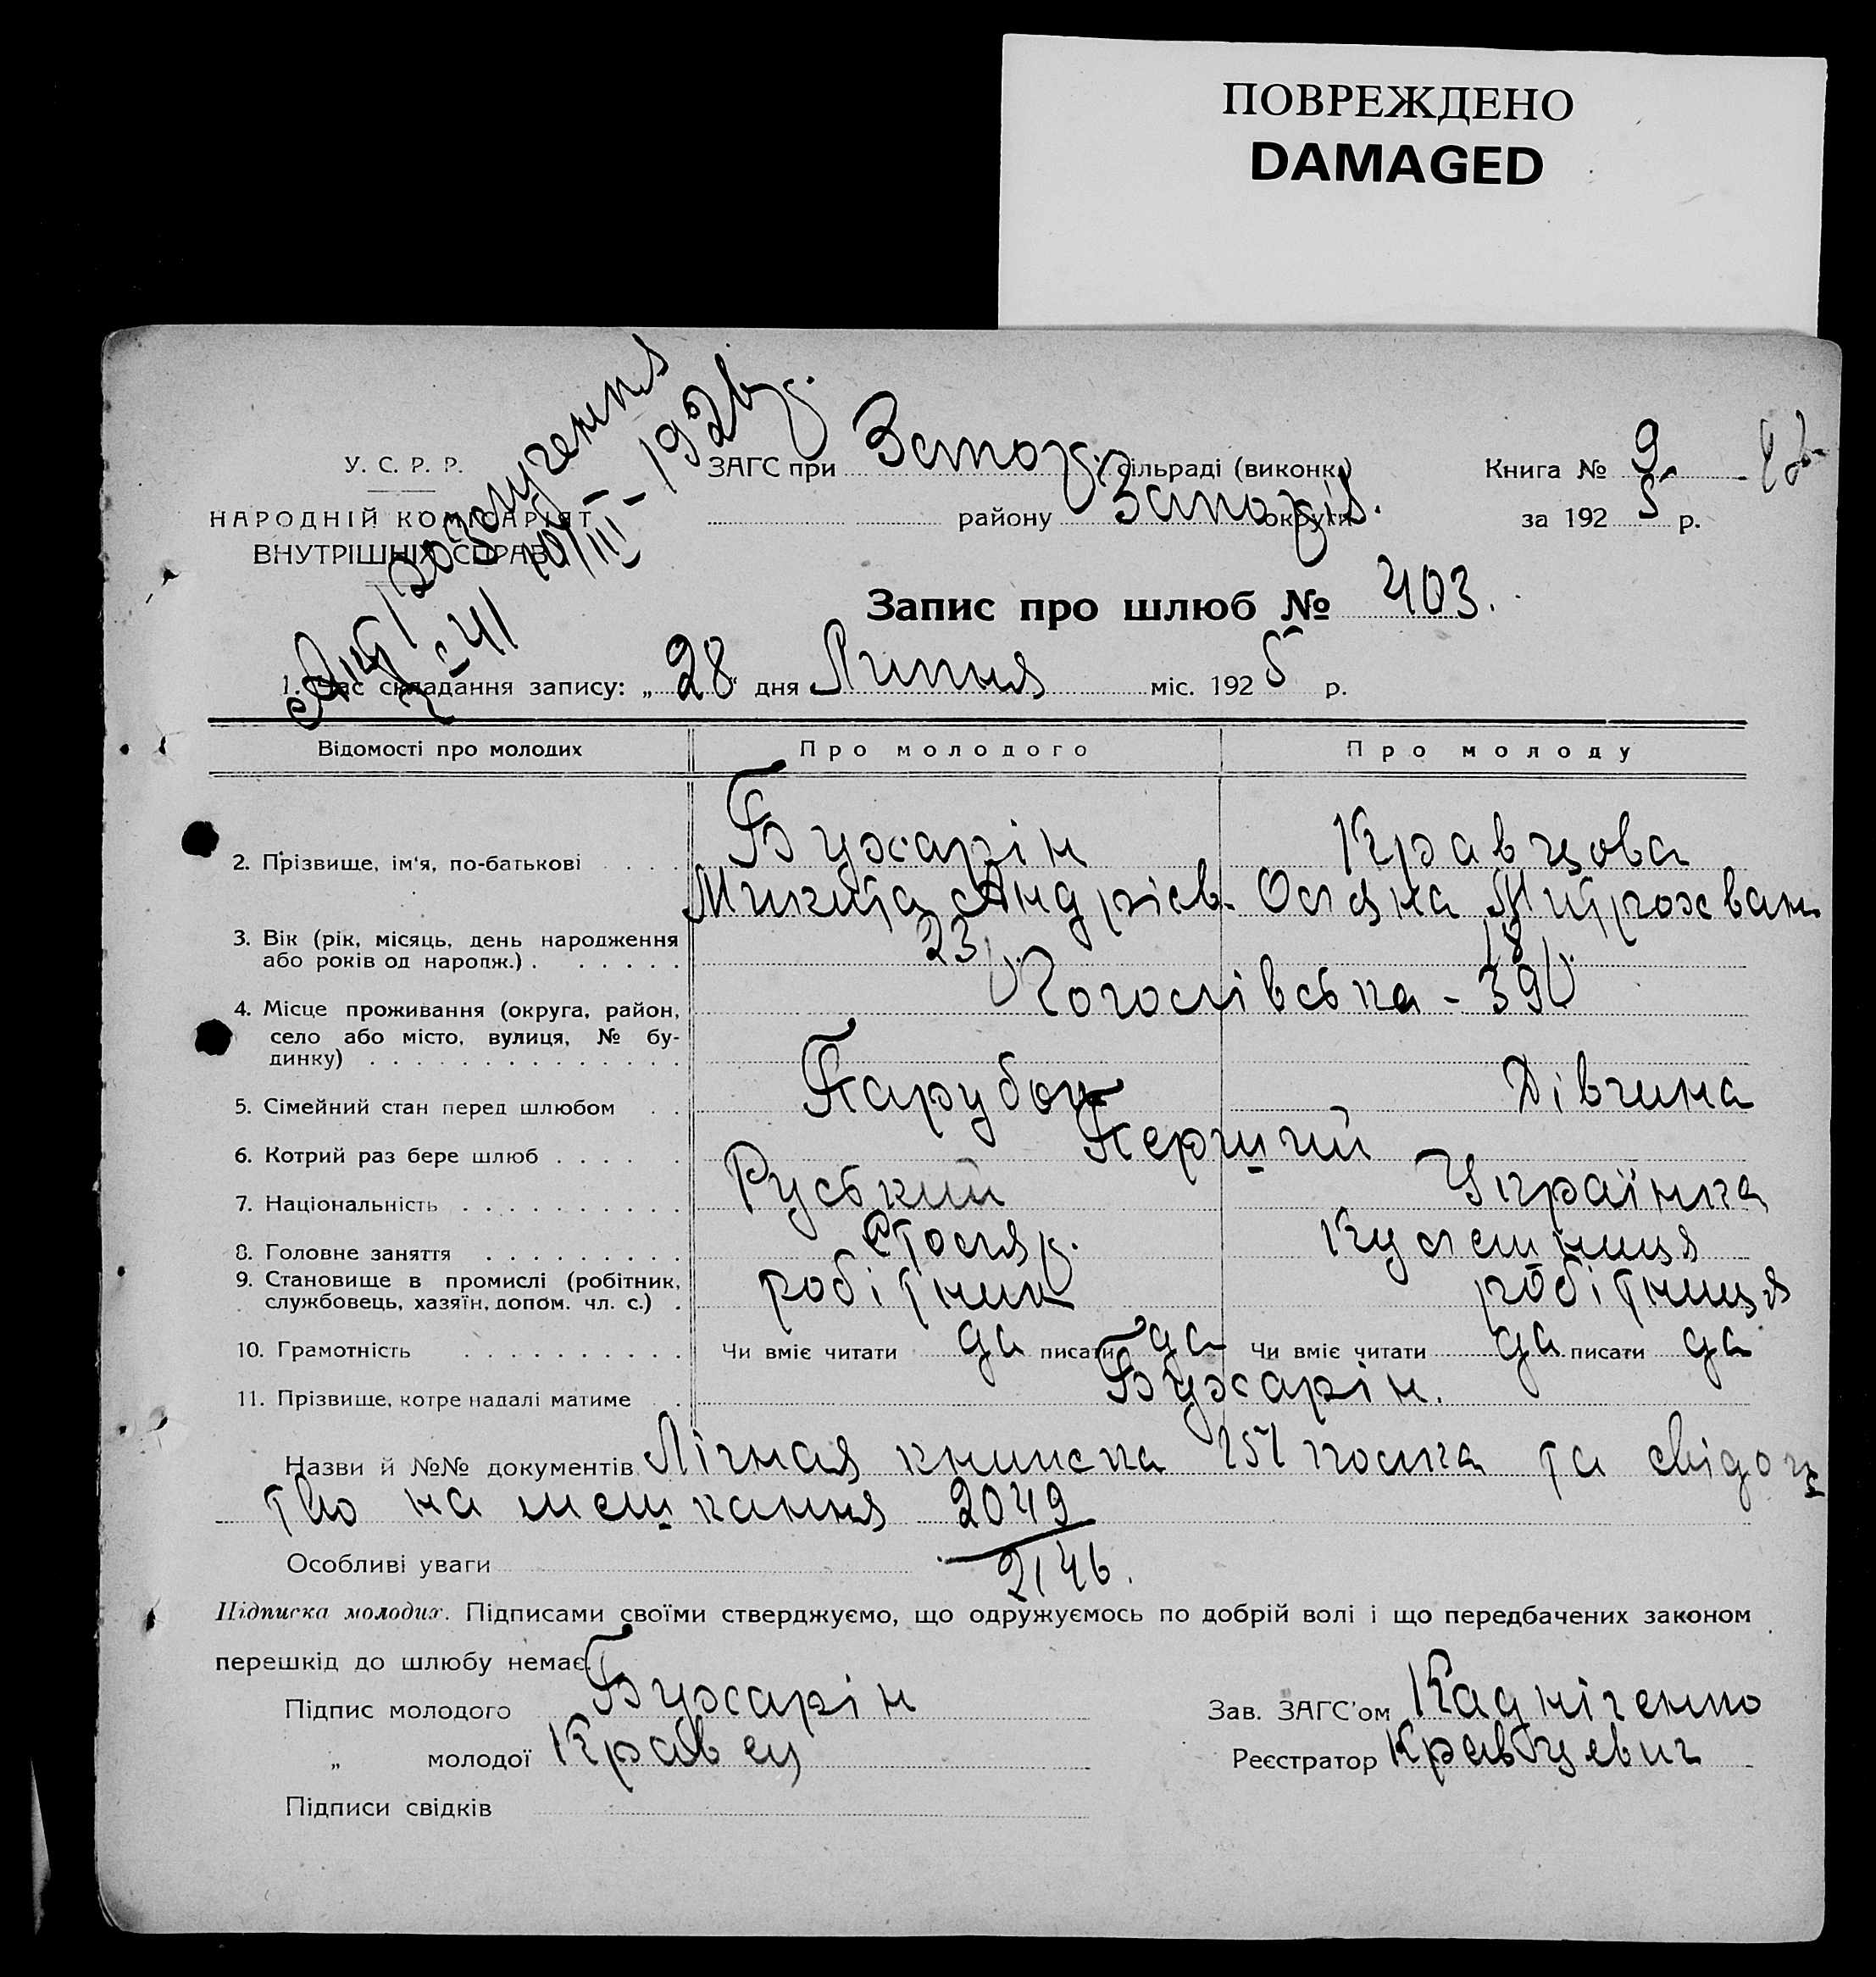 ПОВРЕЖДЕНО
DAMAGED
Акт розлучення
№ 41 10/III - 1926 р.
У. С. Р. Р.
НАРОДНІЙ КОМІСАРІЯТ
ВНУТРІШНІХ СПРАВ
ЗАГС при Запоріз. сільраді (виконк.)
району Запоріз. округи
Книга № 9
за 1925 р.
Запис про шлюб № 403.
1. Час складання запису: „28“ дня Липня міс. 1925 р.
Відомості про молодих Про молодого Про молоду
2. Прізвище, ім'я, по-батькові Бухарін Кравцова
Микита Андрієв. Оляна Митрохван.
3. Вік (рік, місяць, день народження або років од народж.) 23 р. 18 р.
4. Місце проживання (округа, район, село або місто, вулиця, № будинку) - 39
5. Сімейний стан перед шлюбом Парубок Дівчина
6. Котрий раз бере шлюб Перший
7. Національність Руський Українка
8. Головне заняття Столяр.
9. Становище в промислі (робітник, службовець, хазяїн, допом. чл. с.) робітник робітниця
10. Грамотність Чи вміє читати да писати да Чи вміє читати да писати да
11. Прізвище, котре надалі матиме Бухарін.
Назви й №№ документів Лічная книжка 151 полка та свідоц
тво на мешкання 2049
2146.
Особливі уваги
Підписка молодих. Підписами своїми стверджуємо, що одружуємось по добрій волі і що передбачених законом
перешкід до шлюбу немає.
Підпис молодого Бухарін
„ молодої Кравец
Підписи свідків
Зав. ЗАГС'ом Кадніченко
Реєстратор Кравцевич